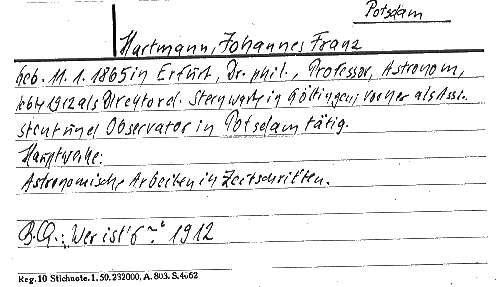 Potsdam
Hartmann, Johannes Franz
geb. 11. 1. 1865 in Erfurt, Dr. phil., Professor, Astronom,
lebte 1912 als Direktor d. Sternwarte in Göttingen, vorher als Assi-
stent und Observator in Potsdam tätig.
Hauptwerke:
Astronomische Arbeiten in Zeitschriften.
B.Q.: Wer ist's 1912
Reg. 10 Stichnote. 1. 50. 232000, A. 803. S. 4062